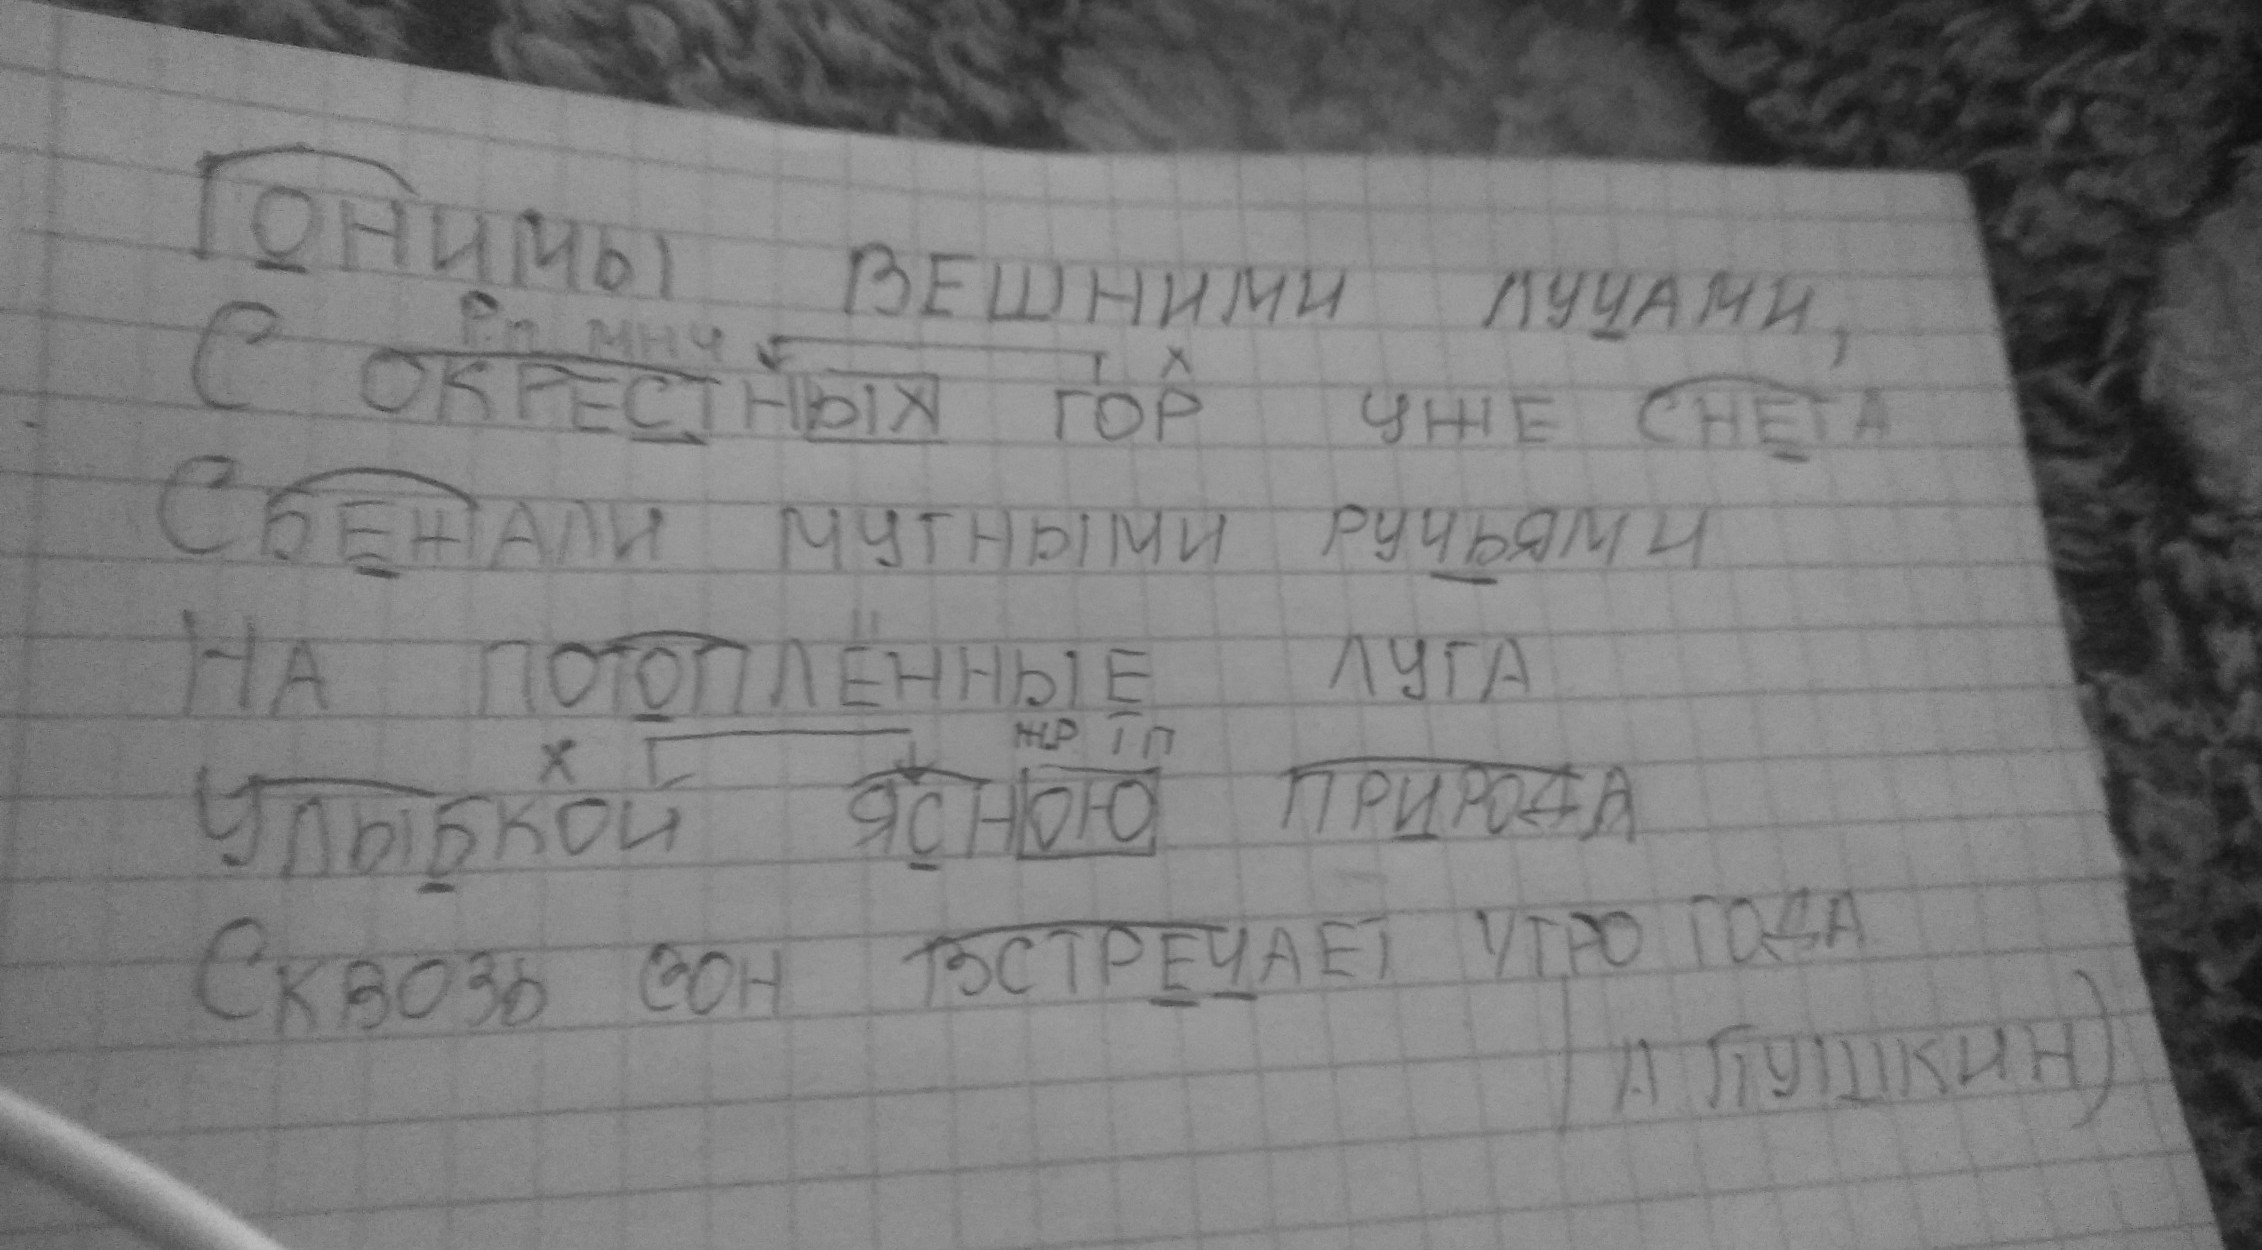 Гонимы вешними лучами,
Р.п. мн ч х
С окрестных гор уже снега
Сбежали мутными ручьями
На потоплённые луга
х жр п
Улыбкой ясною природа
Сквозь сон встречает утро года
(А Пушкин)